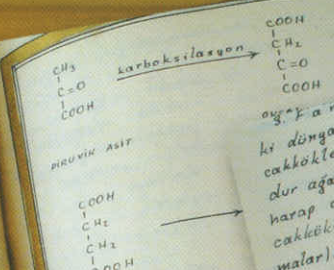 CH3
C=O
COOH
karboksilasyon
COOH
CH2
C=O
COOH
PİRUVİK ASİT
COOH
CH2
CH2
COOH
ki dünya
cakkökle
dur ağa
harap
cakkök
maları